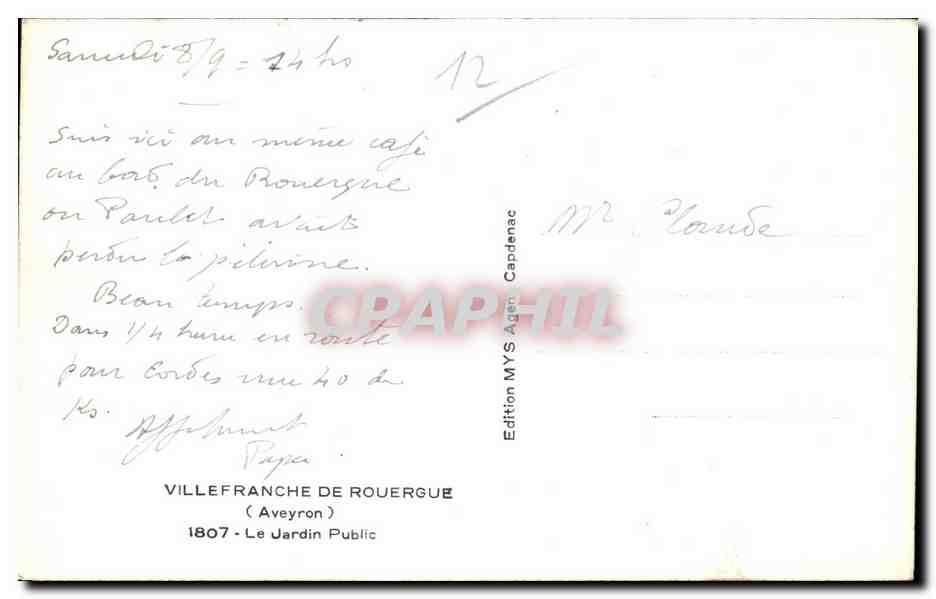 Samedi 8/9 = 14 hs
12
Suis ici au même café
au bord du Rouergue
ou Paulet avait
perdu la pèlerine.
Beau temps.
Dans 1/4 heure en route
pour Cordes une 40 de
Ks.
Affectueusement
Papa
Mr Claude
CPAPHIL
Edition MYS Agen Capdenac
VILLEFRANCHE DE ROUERGUE
(Aveyron)
1807 - Le Jardin Public